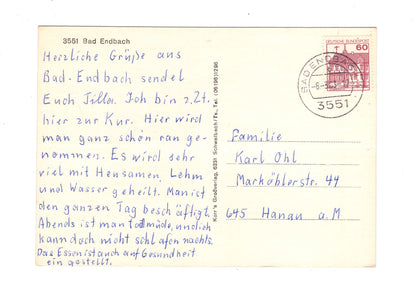 3551 Bad Endbach
Herzliche Grüße aus
Bad-Endbach sendet
Euch Jilla. Ich bin z.Zt.
hier zur Kur. Hier wird
man ganz schön ran ge-
nommen. Es wird sehr
viel mit Heusamen, Lehm
und Wasser geheilt. Man ist
den ganzen Tag beschäftigt.
Abends ist man todmüde, und ich
kann doch nicht schlafen nachts.
Das Essen ist auch auf Gesundheit
ein gestellt.
Korr's Großverlag, 6231 Schwalbach/Ts., Tel. (06196) 1296
DEUTSCHE BUNDESPOST
60
BAD ENDBACH
3551
Familie
Karl Ohl
Marköblerstr. 44
645 Hanau a.M